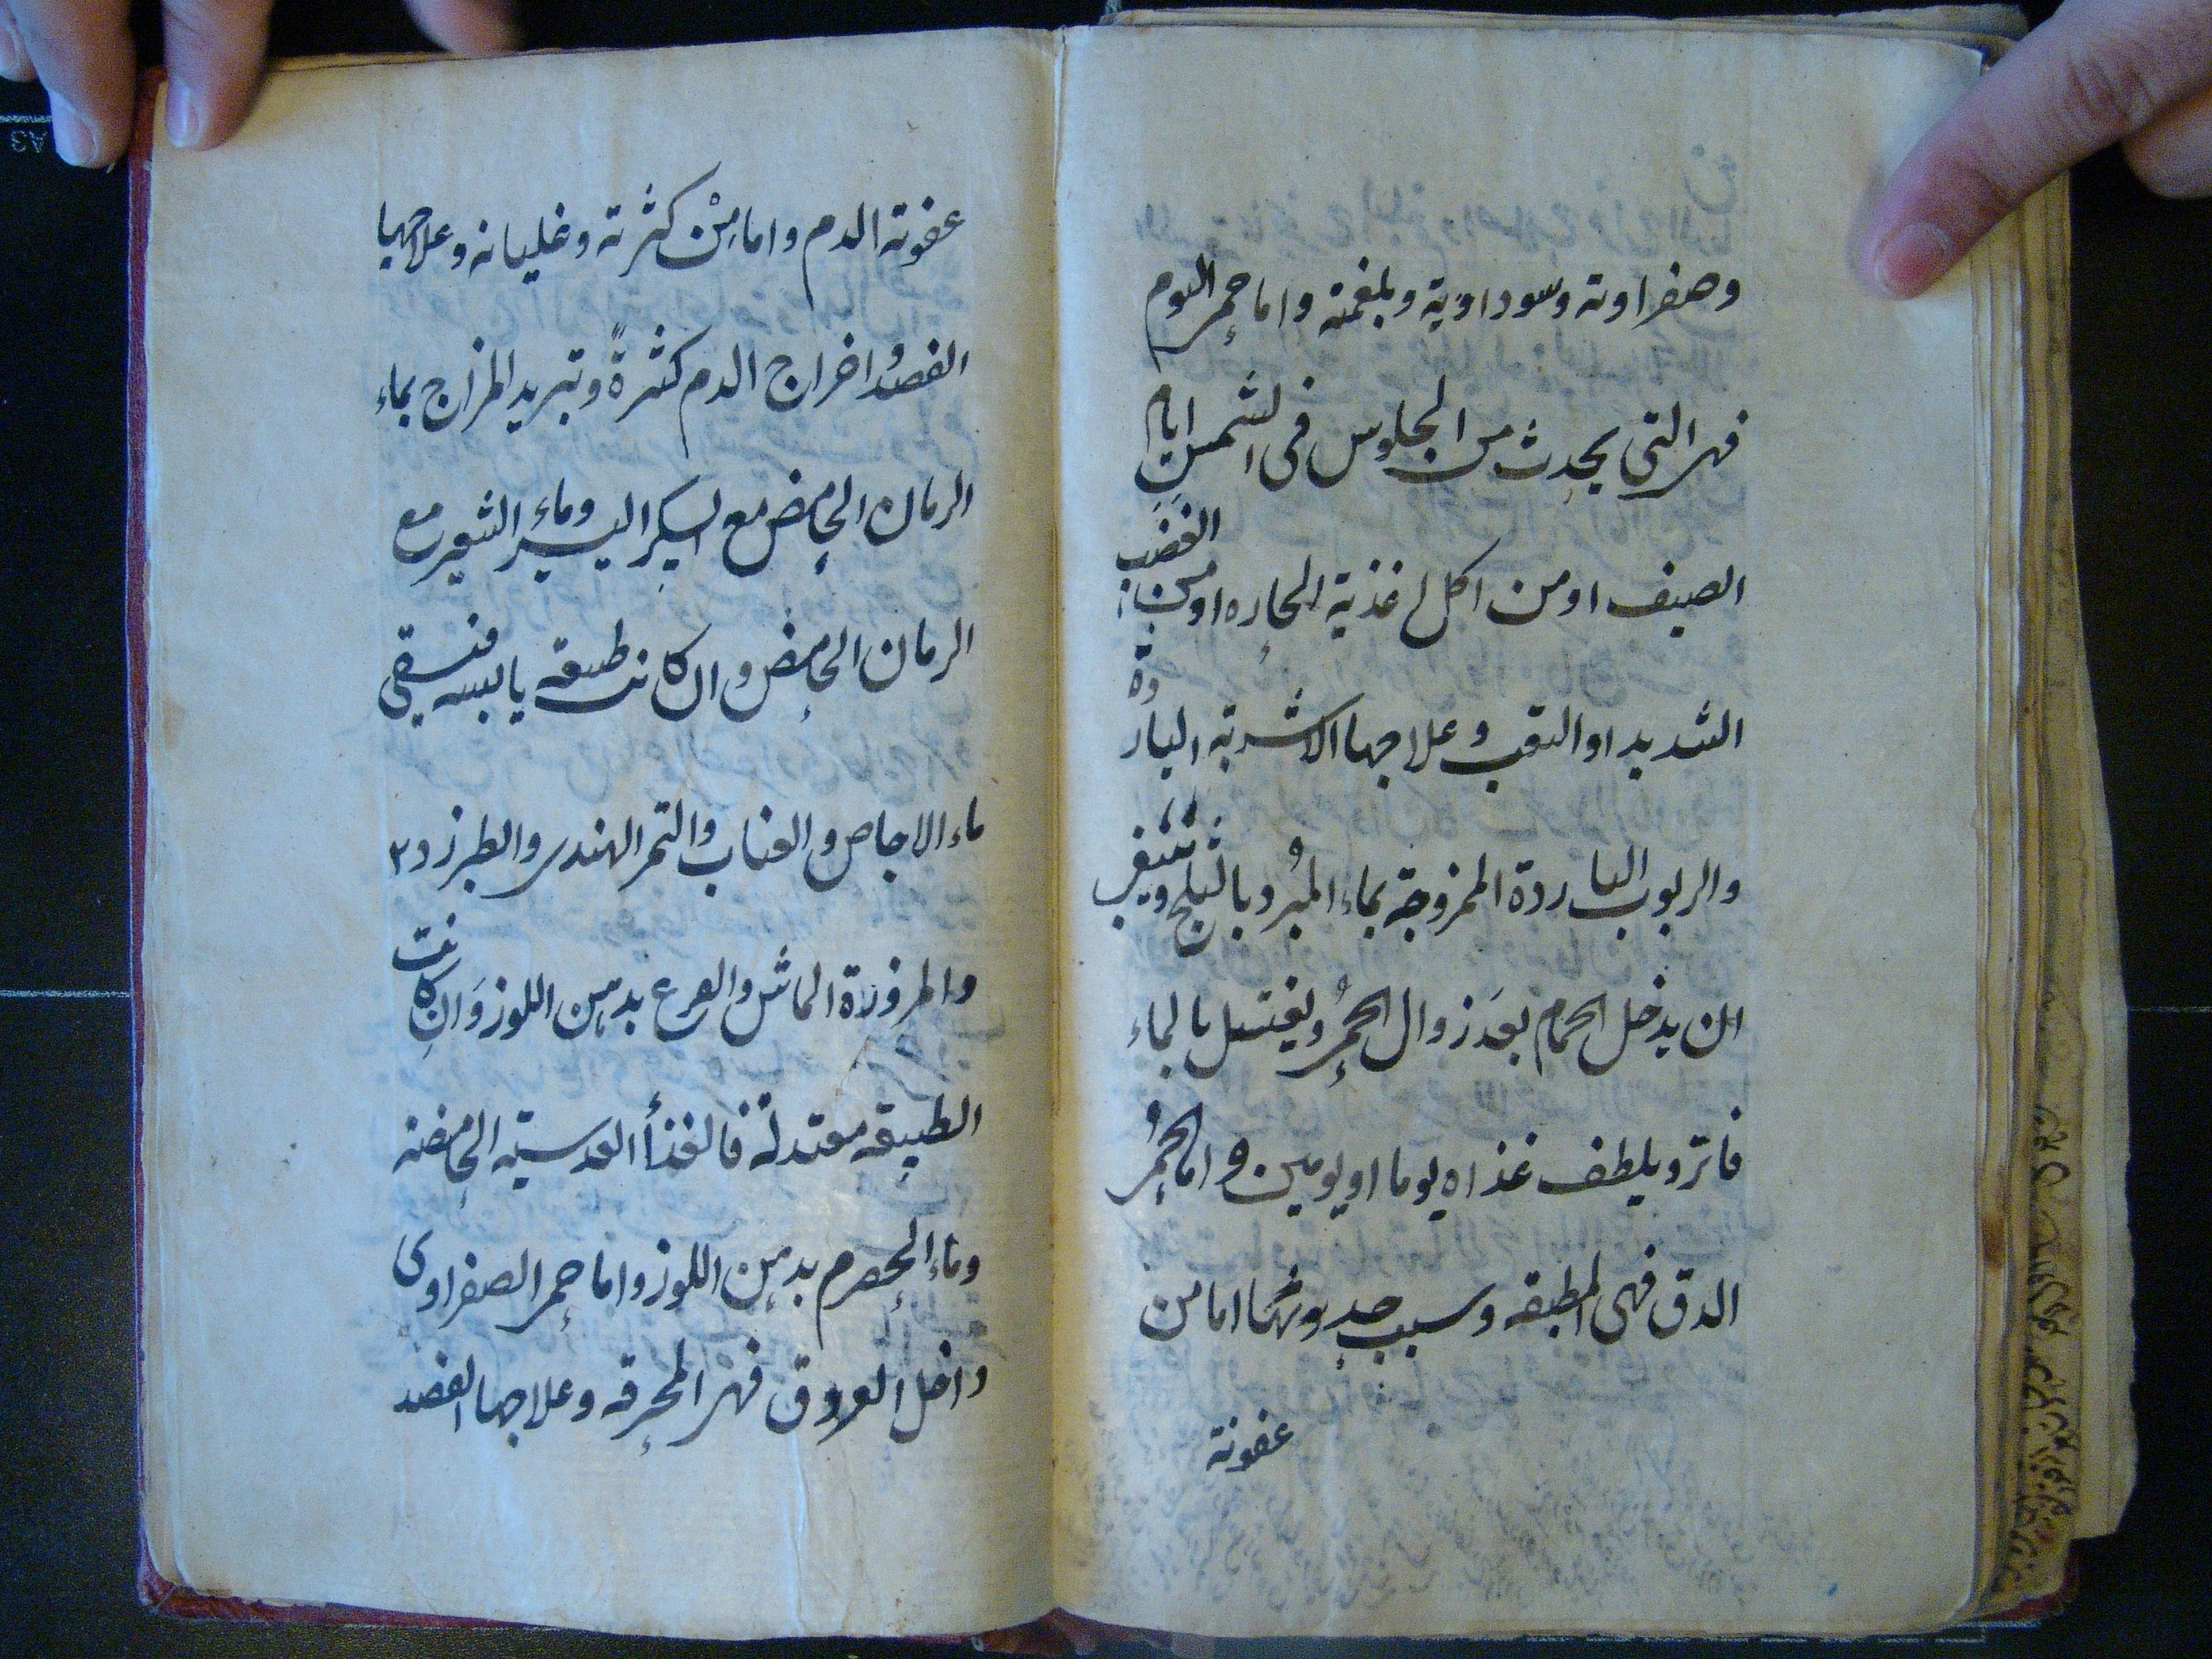 وصفراوية وسوداوية وبلغمية واما حمر اليوم
فهر التي يحدث من الجلوس في الشمس ايام
الصيف او من اكل اغذية الحاره او من الغضب
الشديد او التعب وعلاجها الاشربة الباردة
والربوب الباردة الممزوجة بماء المبرُد بالثلج وينبغي
ان يدخل الحمام بعدَ زوال الحمرُ ويغتسل بالماء
فاتر ويلطف غذاه يوما او يومين و اما الحمرُ
الدق فهى المطبقه وسبب حدوثها اما من
عفونة
عفونة الدم واما مِنْ كثرته وغليانه وعلاجها
الفصدُ اخراج الدم كثرةً وتبريد المزاج بماء
الرمان الحامض مع السكر اليسير وماء الشعير مع
الرمان الحامض وان كانت طبيعه يابسه فنسقى
ماء الاجاص والعناب والتمر الهندى والطبرزد ٢
والمزورة الماش والقرع بدهن اللوز وَان كانت
الطبيعه معتدلةً فالغذأ العدسيه الحامضه
وماء الحصرم بدهن اللوز واما حمر الصفراوى
داخل العروق فهر المحرقه وعلاجها الفصد